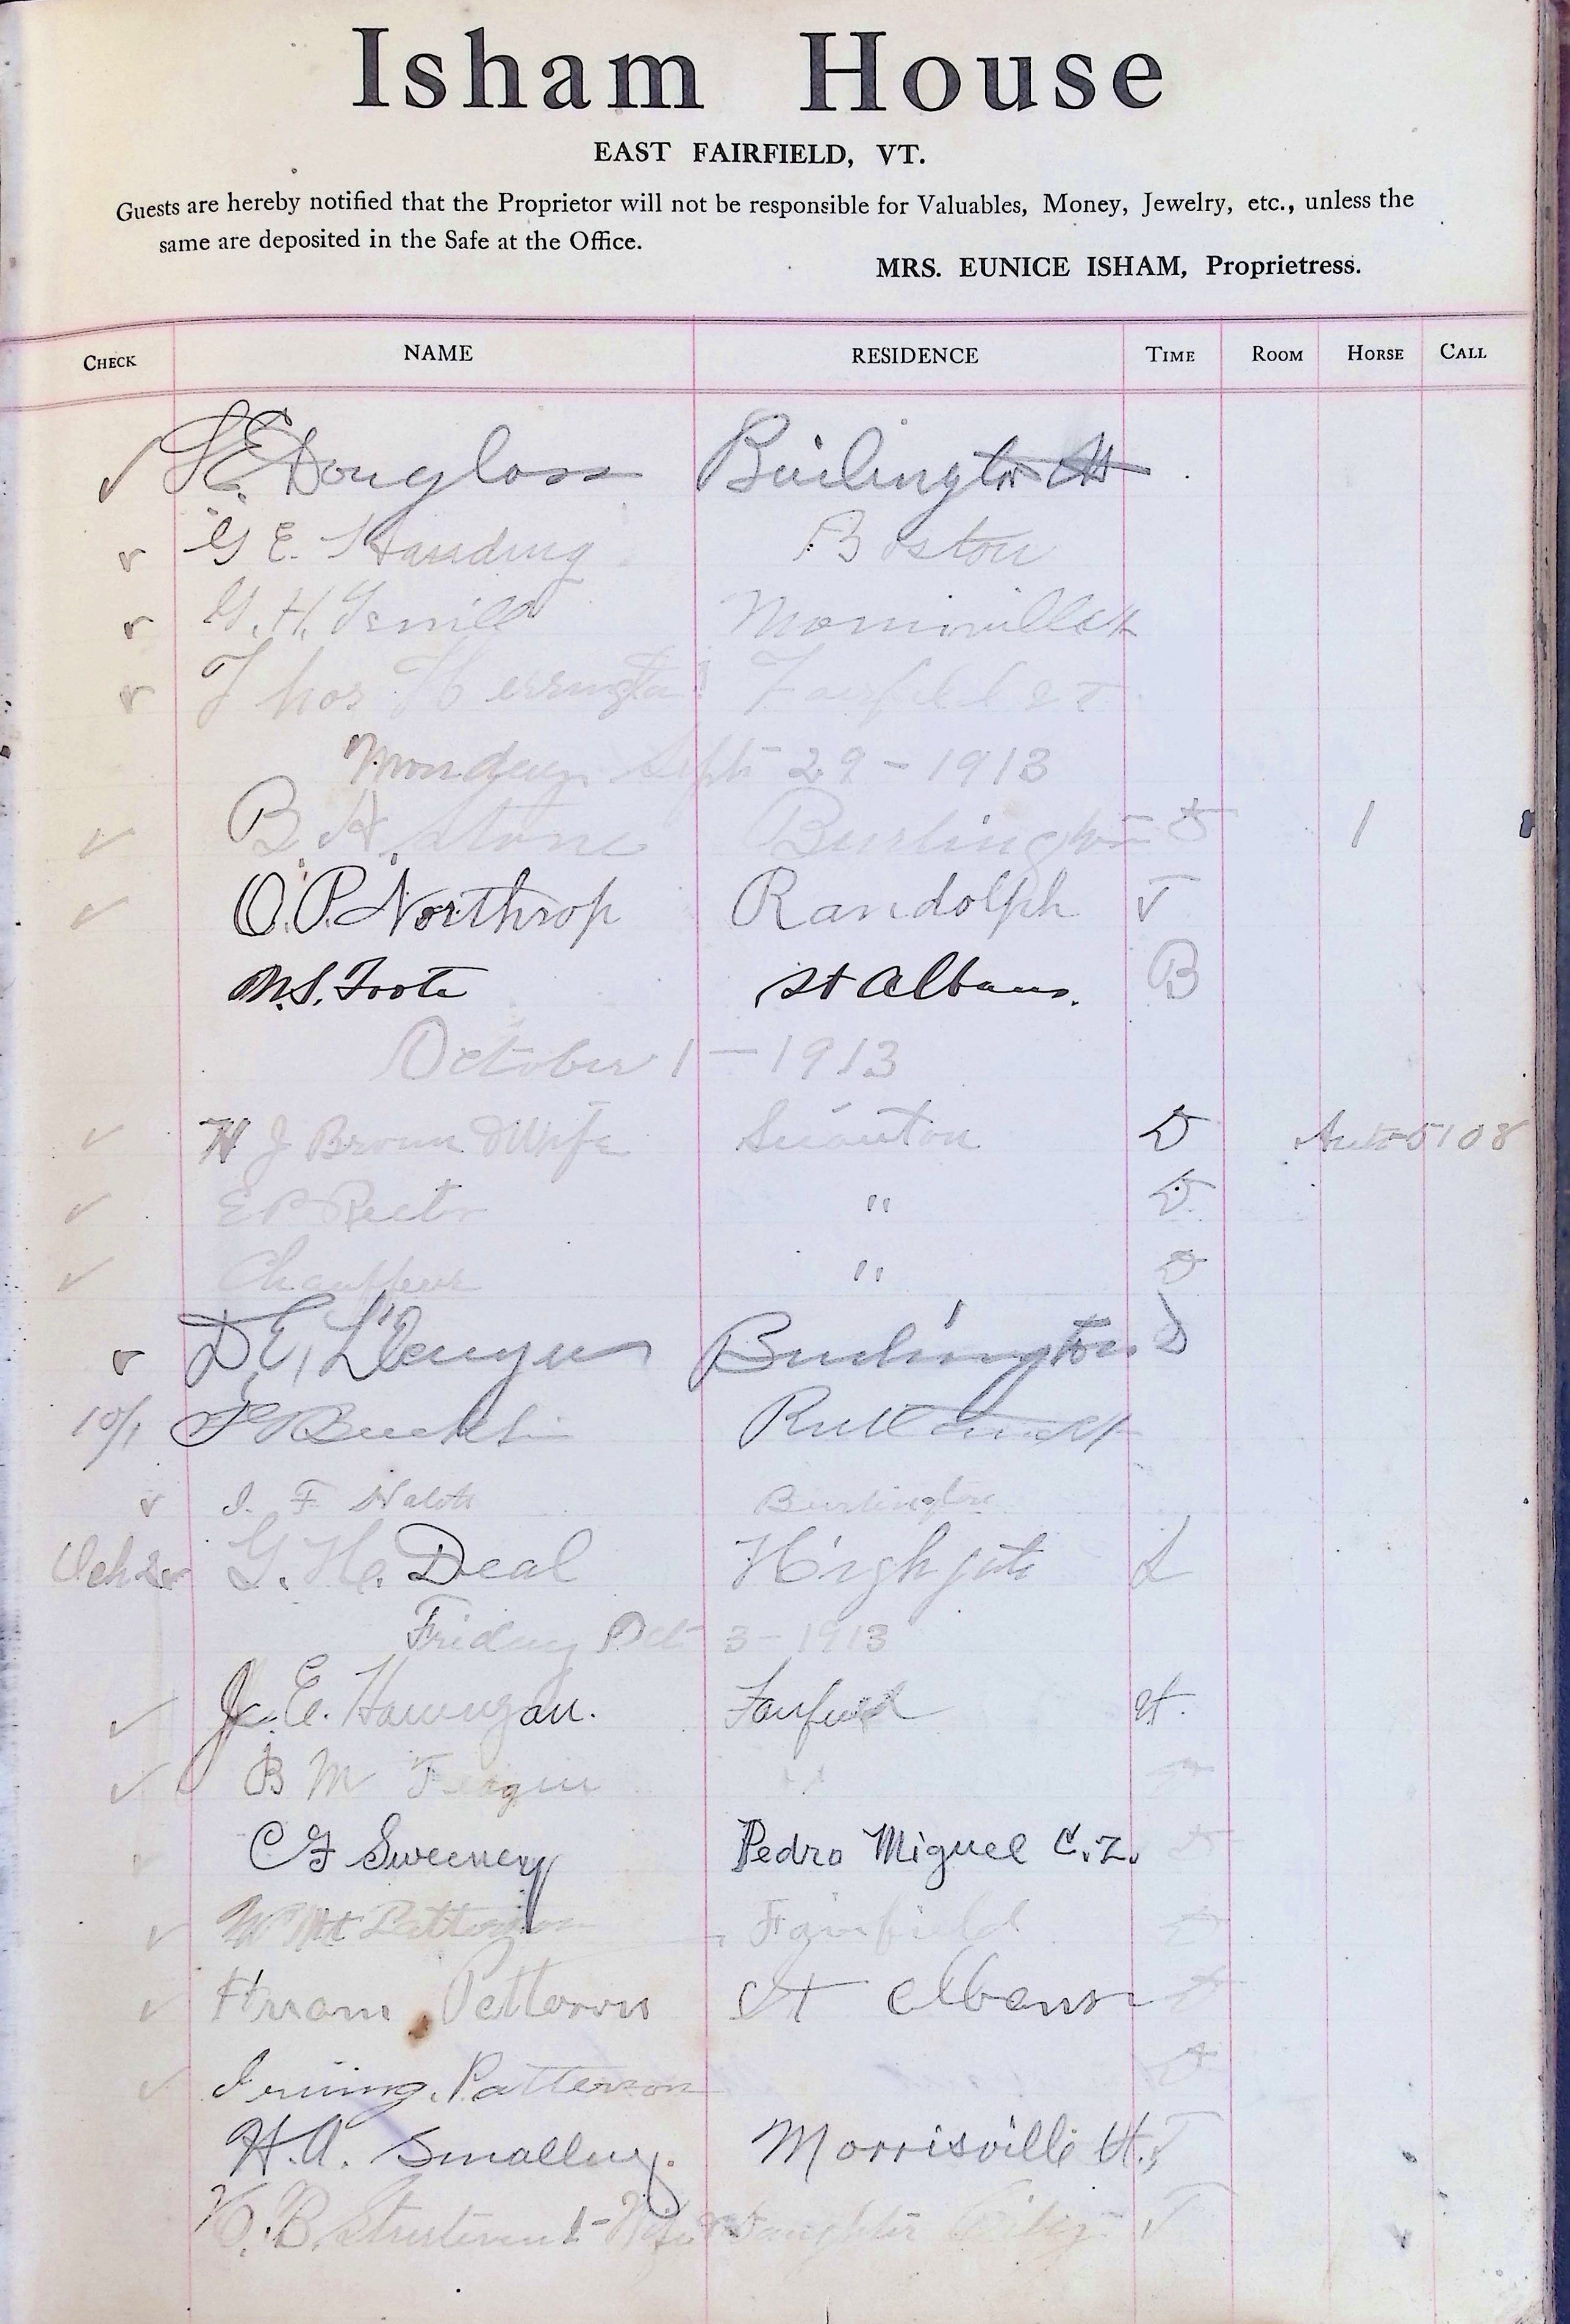 Isham House
EAST FAIRFIELD, VT.
Guests are hereby notified that the Proprietor will not be responsible for Valuables, Money, Jewelry, etc., unless the
same are deposited in the Safe at the Office.
MRS. EUNICE ISHAM, Proprietress.
CHECK NAME RESIDENCE TIME ROOM HORSE CALL
Douglass Burlington Vt
G E. Harding Boston
G. H. Morrisville Vt
Thos Herrington Fairfield VT
Monday Sept 29 - 1913
B. A. Stone Burlington 1
O. P. Northrop Randolph T
M. S. Foote St Albans. B
October 1 - 1913
H J Brown & Wife Swanton D Auto 5108
E P Rector " D
Chauffeur " D
D E, Burlington D
10/1 Bucklin Rutland Vt
F Burlington
Oct 2 G. H. Deal Highgate L
Friday Oct 3 - 1913
J. E. Hannigan. Fairfield
B M "
C F Sweeney Pedro Miguel C. Z.
Patterson Fairfield
Hiram Patterson St Albans
Irving Patterson
H. A. Smalley. Morrisville Vt. T
B. Sturtevant - Wife & Daughter T